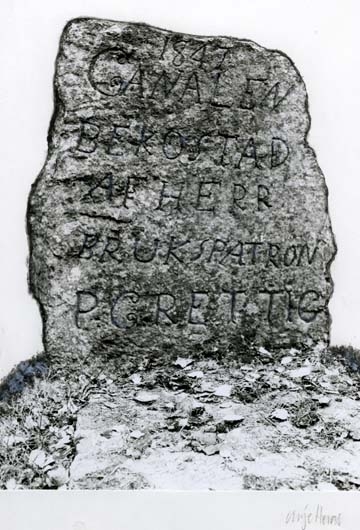 1847
CANALEN
BEKOSTAD
AF HERR
BRUKSPATRON
P.C.RETTIG